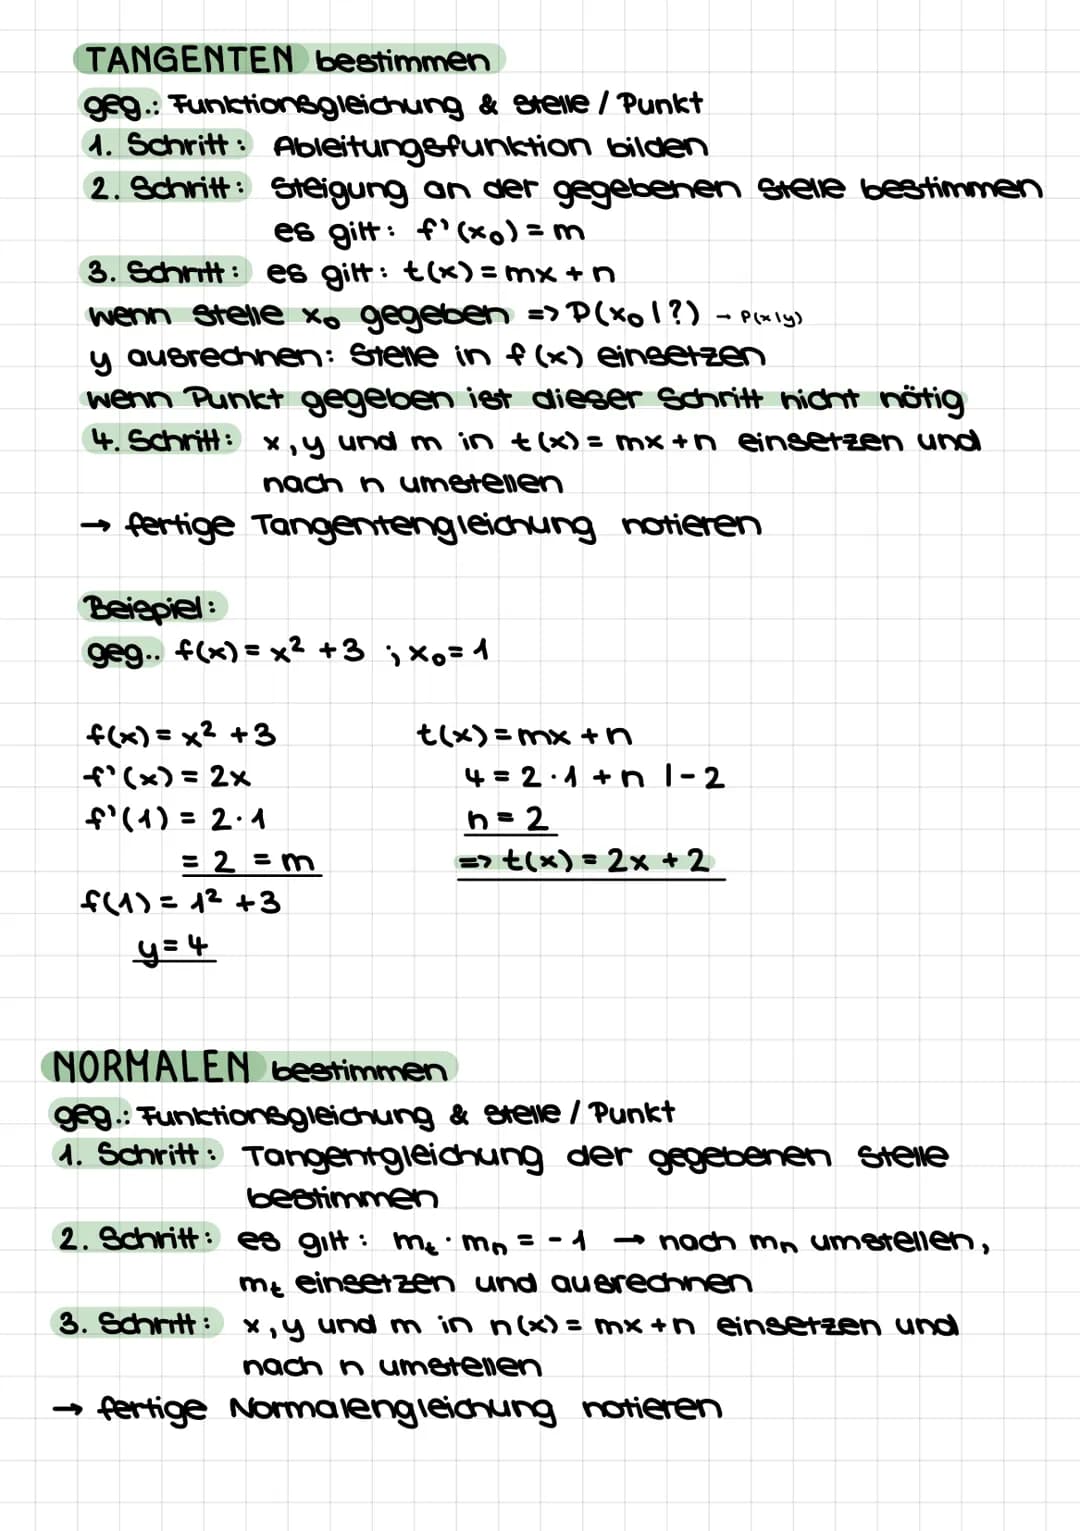 TANGENTEN bestimmen
geg.: Funktionsgleichung & Stelle / Punkt
1. Schritt: Ableitungsfunktion bilden
2. Schritt: Steigung an der gegebenen Stelle bestimmen
es gilt: f'(x₀) = m
3. Schritt: es gilt: t(x) = mx + n
wenn Stelle x₀ gegeben => P(x₀|?) → P(x|y)
y ausrechnen: Stelle in f(x) einsetzen
wenn Punkt gegeben ist dieser Schritt nicht nötig
4. Schritt: x, y und m in t(x) = mx + n einsetzen und
nach n umstellen
→ fertige Tangentengleichung notieren
Beispiel:
geg.. f(x) = x² + 3 ; x₀ = 1
f(x) = x² + 3
f'(x) = 2x
f'(1) = 2·1
= 2 = m
f(1) = 1² + 3
y = 4
t(x) = mx + n
4 = 2·1 + n |-2
n = 2
=> t(x) = 2x + 2
NORMALEN bestimmen
geg.: Funktionsgleichung & Stelle / Punkt
1. Schritt: Tangentgleichung der gegebenen Stelle
bestimmen
2. Schritt: es gilt: mₜ · mₙ = -1 → nach mₙ umstellen,
mₜ einsetzen und ausrechnen
3. Schritt: x, y und m in n(x) = mx + n einsetzen und
nach n umstellen
→ fertige Normalengleichung notieren